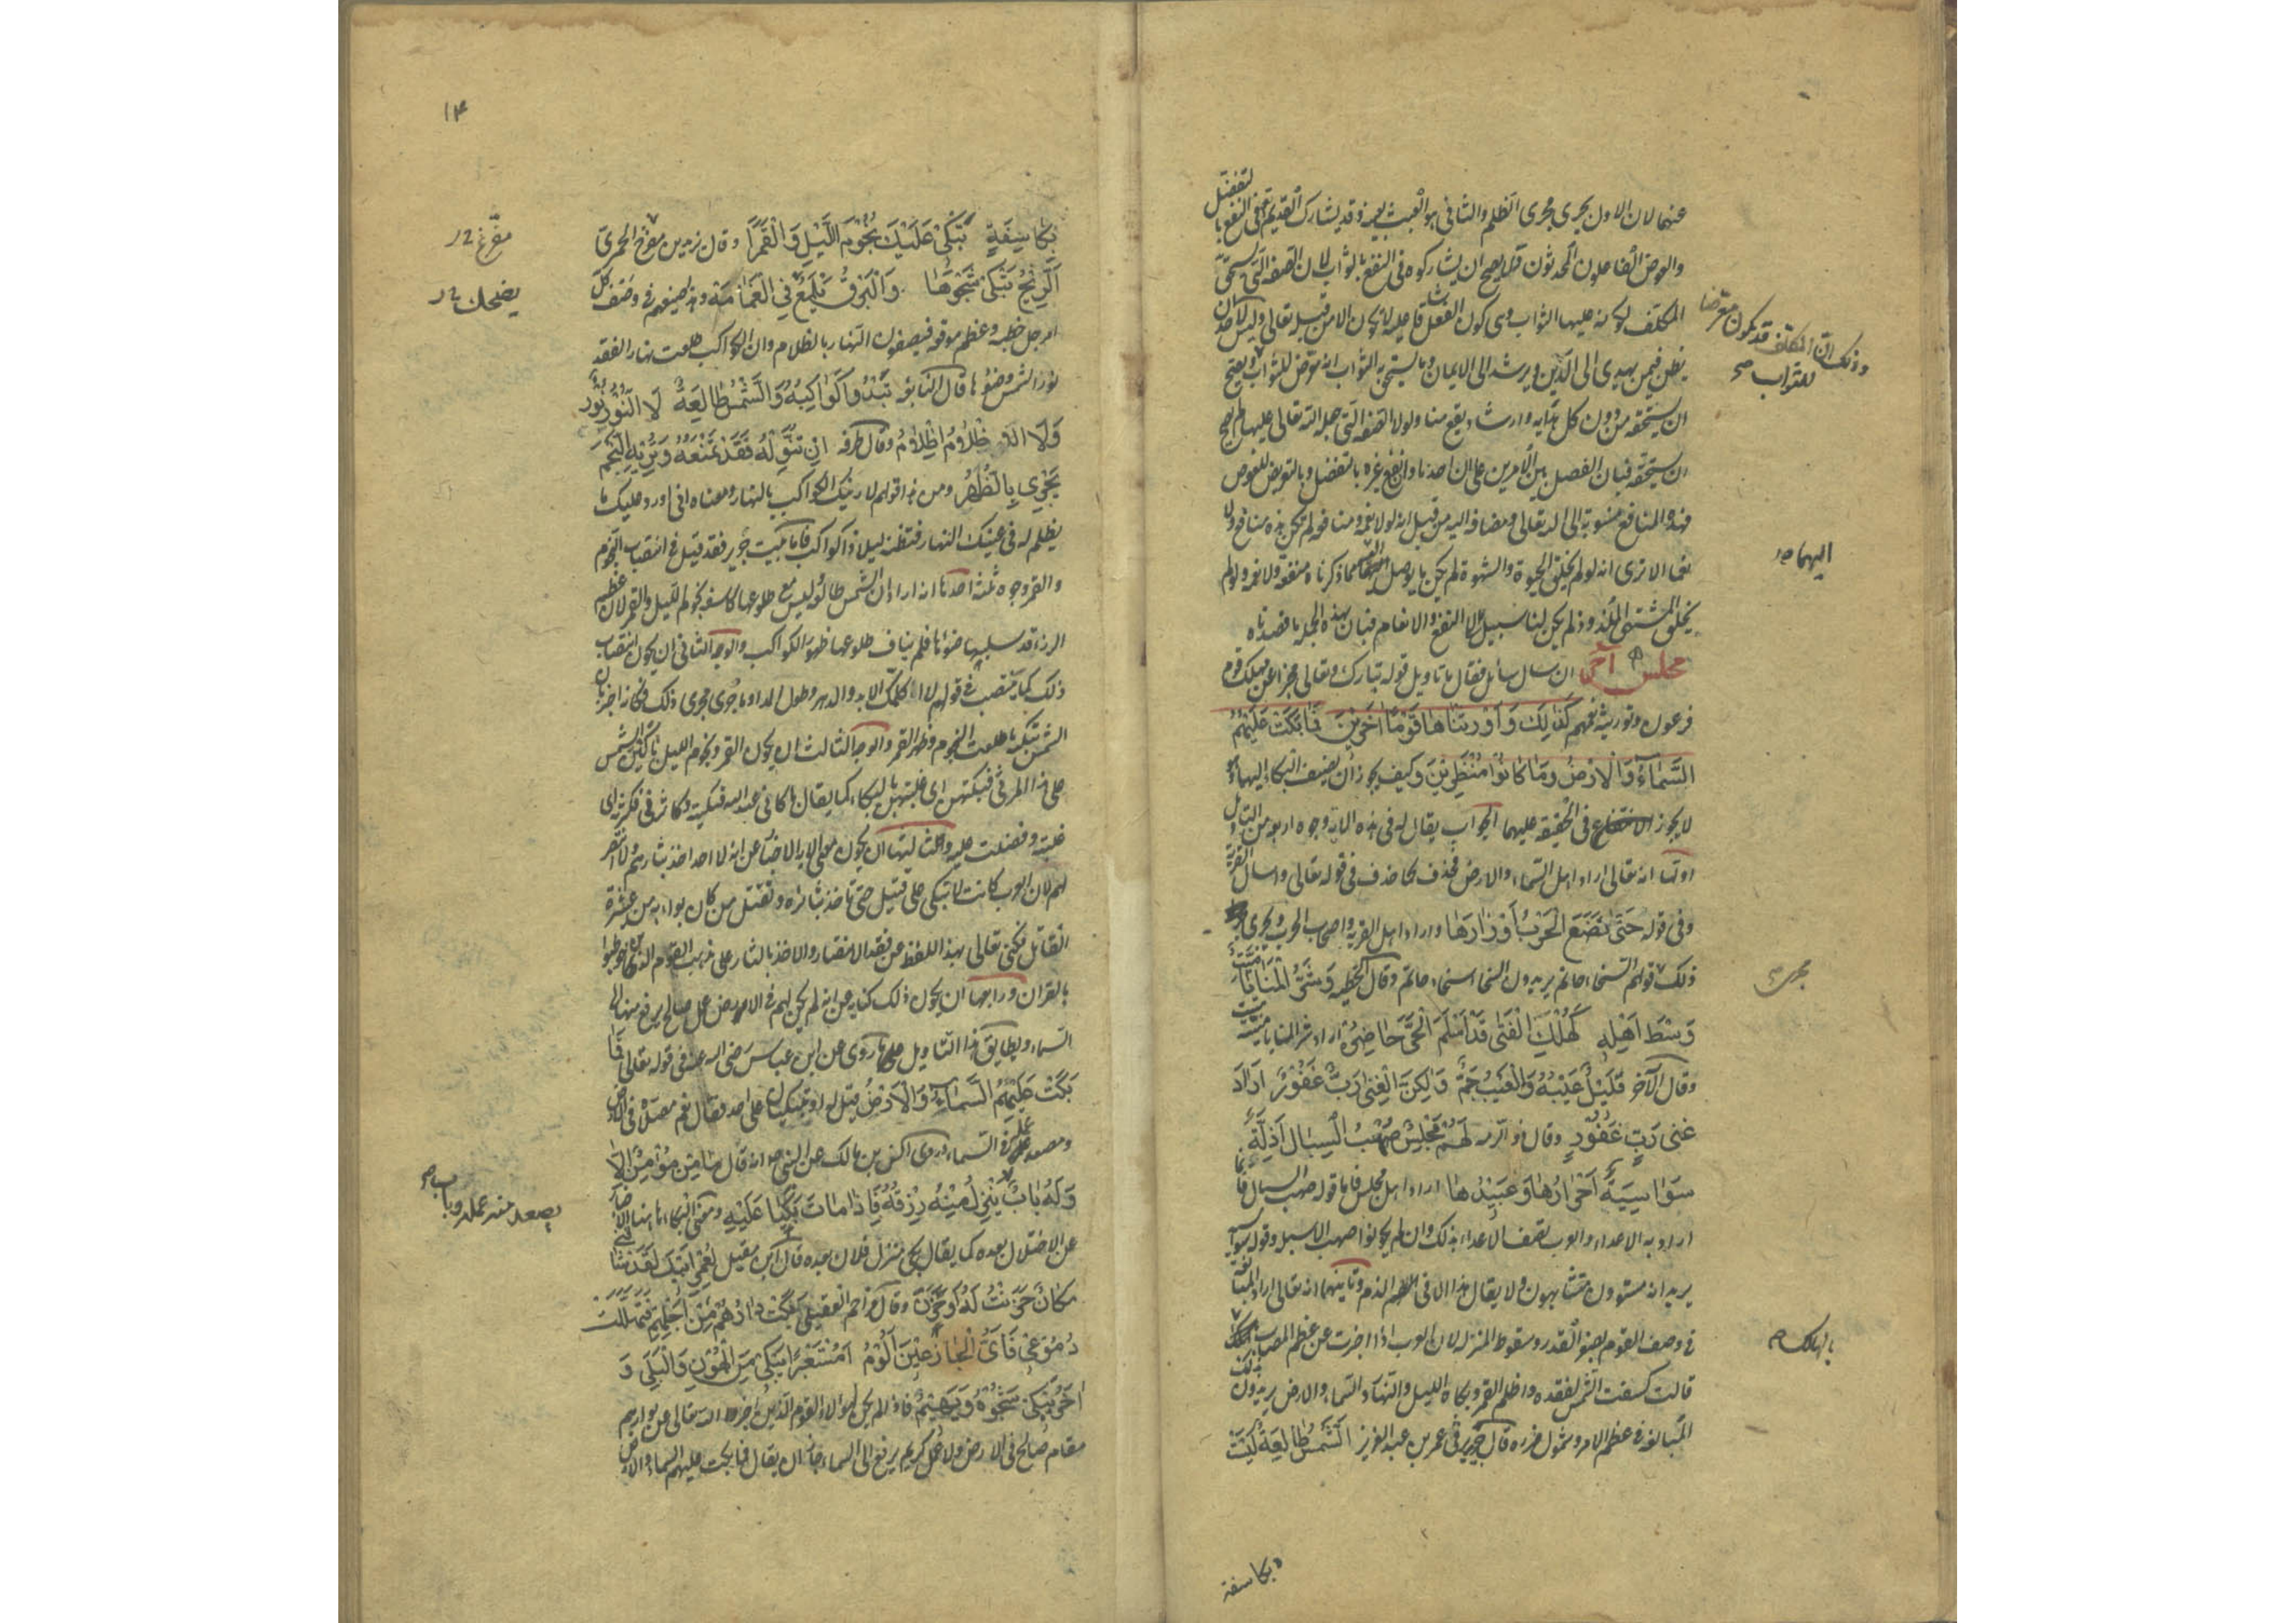 عنهما لان الاول يجرى مجرى الظلم والثانى هو العبث بعينه وقد يشارك القديم تعالى فى النفع بالتفضل
والعوض الفاعلون المحدثون فلا يصح ان يشاركوه فى النفع بالثواب لان الصفة التى يستحق
المكلف لكونه عليها الثواب وهى كون الفعل شاقا عليه لا يكون الا من قبله تعالى وليس لاحد ان
يظن فيمن يهدى الى الدين ويرشد الى الايمان وما يستحق به الثواب انه معرض للثواب
وذلك ان المكلف قد يكون معرضا
للثواب صح
ان يستحقه من دون كل هداية وارشاد يقع منا ولولا الصفة التى جعله الله تعالى عليها لم يصح
ان يستحقه فبان الفصل بين الامرين على ان احدنا وان نفع غيره بالتفضل وبالتعويض للعوض
فهذه المنافع منسوبة الى الله تعالى ومضافة اليه من قبل انه لولا نعمه ومنافعه لم تكن هذه منافع ولا
نعما الا ترى انه لو لم يخلق الحيوة والشهوة لم يكن ما يوصل مما ذكرناه منفعة ولا نعمة ولو لم
اليهما صح
يخلق المشتهى الملذ لم يكن لنا سبيل الى النفع والانعام فبان بهذه الجملة ما قصدناه
مجلس آخر ان سال سائل فقال ما تاويل قوله تبارك وتعالى مخبرا عن مهلك قوم
فرعون وتوريثه نعمهم كَذٰلِكَ وَاَوْرَثْنَاهَا قَوْمًا آخَرِيْنَ فَمَا بَكَتْ عَلَيْهِمُ
السَّمَاۤءُ وَالْاَرْضُ وَمَا كَانُوْا مُنْظَرِيْنَ وكيف يجوز ان يضيف البكاء اليهما وهو
لا يجوز فى الحقيقة عليهما الجواب يقال له فى هذه الاية وجوه اربعة من التاويل
اولها انه تعالى اراد اهل السماء والارض فحذف كما حذف فى قوله تعالى واسال القرية
وفى قوله حَتّٰى تَضَعَ الْحَرْبُ اَوْزَارَهَا واراد اهل القرية واصحاب الحرب ويجرى
مجرى صح
ذلك قولهم السخاء حاتم يريدون السخاء سخاء حاتم وقال الحطيئة وَشَرُّ الْمَنَايَا مَيِّتٌ
وَسْطَ اَهْلِهِ كَهُلْكِ الْفَتٰى قَدْ اَسْلَمَ الْحَيَّ حَاضِرُهْ اراد شر المنايا ميتة ميت
وقال الآخر قَلِيْلٌ عَيْبُهُ وَالْعَيْبُ جَمٌّ وَلٰكِنَّ الْغِنٰى رَبٌّ غَفُوْرٌ اراد
غنى رَبٍّ غَفُوْرٍ وقال ذو الرمة لَهُمْ مَجْلِسٌ صُهْبُ السِّبَالِ اَذِلَّةٌ
سَوَاسِيَةٌ اَحْرَارُهَا وَعَبِيْدُهَا اراد اهل مجلس فاما قوله صهب السبال فانما
اراد به الاعداء والعرب تصف الاعداء بذلك وان لم يكونوا صهب الاسبلة وقوله سواسية
يريد انهم مستوون متشابهون ولا يقال هذا الا فى الذم وثانيها انه تعالى اراد المبالغة
فى وصف القوم بصغر القدر وسقوط المنزلة لان العرب اذا اخبرت عن عظم المصاب
بالهالك صح
قالت كسفت الشمس لفقده واظلم القمر وبكاه الليل والنهار والسماء والارض يريدون بذلك
المبالغة فى عظم الامر وشمول ضرره قال جرير فى عمر بن عبد العزيز الشَّمْسُ طَالِعَةٌ لَيْسَتْ
بكاسفة
۱۴
بِكَاسِفَةٍ تَبْكِيْ عَلَيْكَ نُجُوْمَ اللَّيْلِ وَالْقَمَرَا وقال يزيد بن مفرغ الحميرى
مفرّغ
اَلرِّيْحُ تَبْكِيْ شَجْوَهَا وَالْبَرْقُ يَلْمَعُ فِى الْغَمَامَةْ وهذا صنيعهم فى وصف كل
يضحك
امر جل خطبه وعظم موقعه فيصفون النهار بالظلام وان الكواكب طلعت نهارا لفقد
نور الشمس وضوئها قال النابغة تَبْدُوْ كَوَاكِبُهُ وَالشَّمْسُ طَالِعَةٌ لَا النُّوْرُ نُوْرٌ
وَلَا الاظلام اِظْلَامُ وقال طرفة اِنْ تُنَوِّلْهُ فَقَدْ تَمْنَعُهُ وَتُرِيْهِ النَّجْمَ
يَجْرِيْ بِالظُّهُرْ ومن هذا قولهم لارينك الكواكب بالنهار ومعناه انى اورد عليك ما
يظلم له فى عينك النهار فتظنه ليلا ذا كواكب فاما بيت جرير فقد قيل فى انتصاب النجوم
والقمر وجوه ثلثة احدها انه اراد ان الشمس طالعة ليس مع طلوعها كاسفة نجوم الليل والقمر لان عظم
الرزء قد سلبها ضوءها فلم يناف طلوعها ظهور الكواكب والوجه الثانى ان يكون انتصاب
ذلك كما ينتصب فى قولهم لا اكلمك الابد والدهر وطول المدا وما جرى مجرى ذلك فكانه اخبر بان
الشمس تبكيه ما طلعت النجوم وظهر القمر والوجه الثالث ان يكون القمر ونجوم الليل باكين الشمس
على هذا المرثى فبكتهن اى غلبتهن بالبكاء كما يقال باكانى عبد الله فبكيته وكاثرنى فكثرته اى
غلبته وفضلت عليه وثالثها ان يكون معنى الاية الاخبار عن انه لا احد اخذ بثارهم ولا انتصر
لهم لان العرب كانت لا تبكى على قتيل حتى تاخذ بثاره وتقتل من كان بواء به من عشيرة
القاتل فكنى تعالى بهذا اللفظ عن فقد الانتصار والاخذ بالثار على مذهب القوم الذين خوطبوا
بالقران ورابعها ان يكون ذلك كناية عن انه لم يكن لهم فى الارض عمل صالح يرفع منها الى
السماء ويطابق هذا التاويل ما روى عن ابن عباس رضى الله عنه فى قوله تعالى فَمَا
بَكَتْ عَلَيْهِمُ السَّمَاۤءُ وَالْاَرْضُ قيل له او تبكيان على احد فقال نعم مصلاه فى الارض
ومصعد عمله فى السماء وروى انس بن مالك عن النبى ص انه قال مَا مِنْ مُؤْمِنٍ اِلَّا
وَلَهُ بَابٌ يَنْزِلُ مِنْهُ رِزْقُهُ فَاِذَا مَاتَ بَكَيَا عَلَيْهِ ومعنى البكاء هاهنا الاخبار
يصعد منه عمله وباب صح
عن الاختلال بعده كما يقال بكى منزل فلان بعده قال ابن مقبل لَعَمْرُ اَبِيْكَ لَقَدْ شَاقَنِيْ
مَكَانٌ حَزِنْتُ لَهُ اَوْ حَزَنْ وقال مزاحم العقيلى بَكَتْ دَارُهُمْ مِنْ اَجْلِهِمْ فَتَهَلَّلَتْ
دُمُوْعِيْ فَاَيَّ الْجَازِعَيْنِ اَلُوْمُ اَمُسْتَعْبِرًا يَبْكِيْ مِنَ الْهُوْنِ وَالْبِلٰى وَ
آخَرَ يَبْكِيْ شَجْوَهُ وَيَهِيْمُ فاذا لم يكن لهؤلاء القوم الذين اخبر الله تعالى عن بوارهم
مقام صالح فى الارض ولا عمل كريم يرفع الى السماء جاز ان يقال فما بكت عليهم السماء والارض